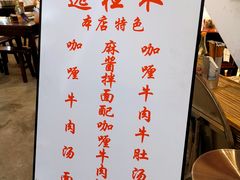 本店特色
咖喱牛肉牛肚汤
麻酱拌面配咖喱牛肉
咖喱牛肉汤面